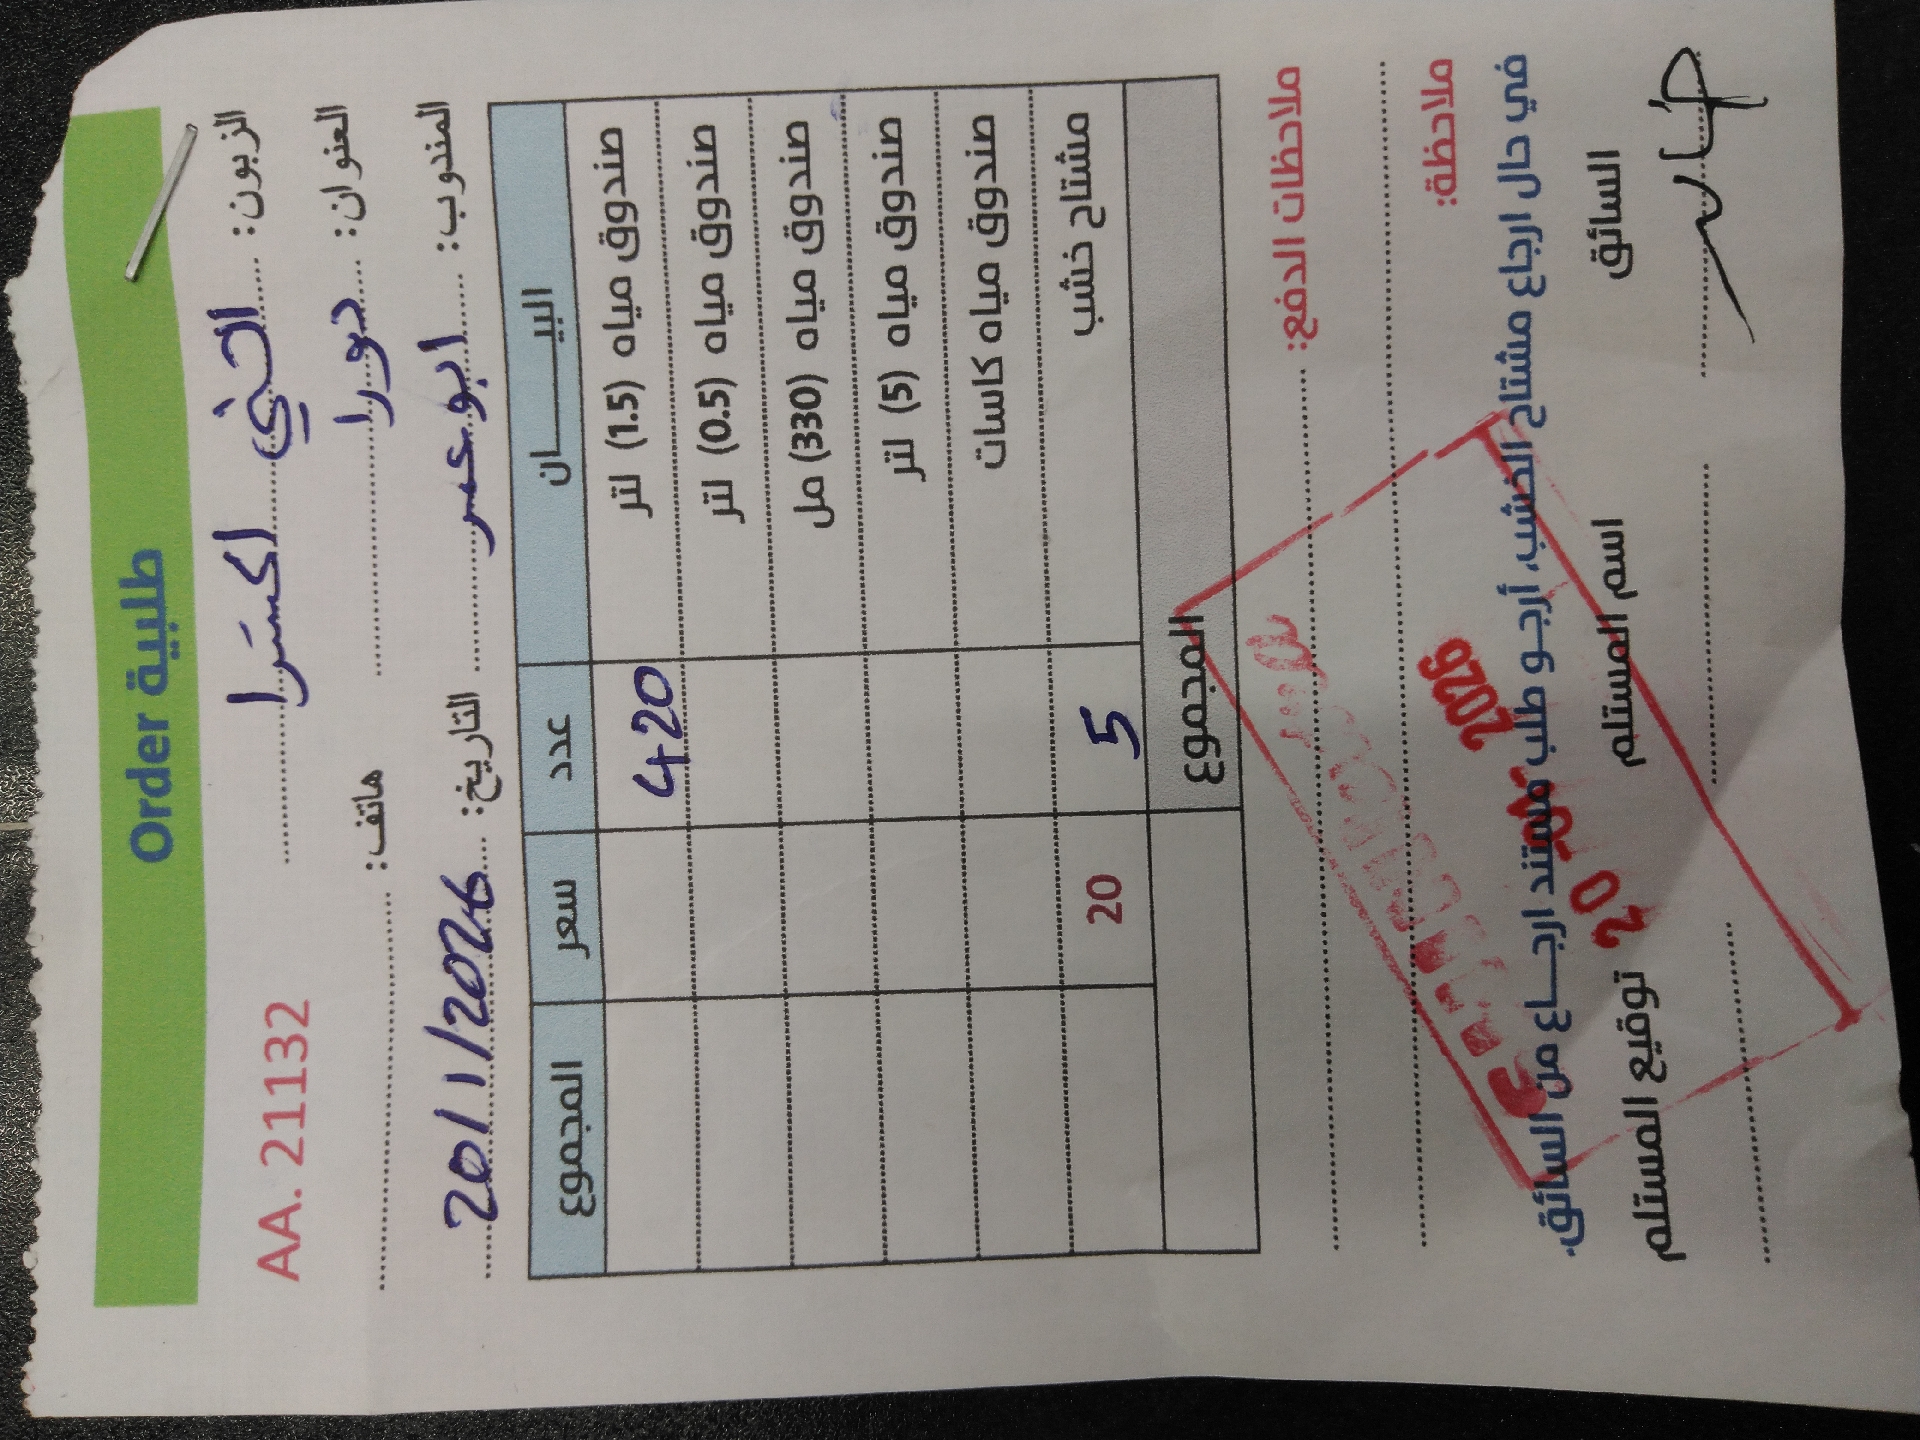 Order طلبية
AA. 21132
الزبون: التحي اكسترا
العنوان: دورا هاتف:
المندوب: ابو عمر التاريخ: 20/1/2026
البيـــــان عدد سعر المجموع
صندوق مياه (1.5) لتر 420
صندوق مياه (0.5) لتر
صندوق مياه (330) مل
صندوق مياه (5) لتر
صندوق مياه كاسات
مشتاح خشب 5 20
المجموع
ملاحظات الدفع:
ملاحظة:
في حال ارجاع مشتاح الخشب، أرجـو طلب مستند ارجـــاع من السائق.
20 2026
السائق اسم المستلم توقيع المستلم